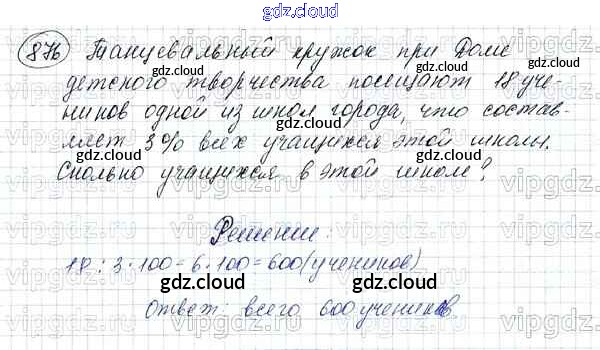 gdz.cloud
876 Танцевальный кружок при Доме
gdz.cloud gdz.cloud
детского творчества посещают 18 уче-
ников одной из школ города, что состав-
gdz.cloud gdz.cloud
ляет 3% всех учащихся этой школы.
gdz.cloud gdz.cloud
Сколько учащихся в этой школе?
vipgdz.cloud vipgdz.cloud
Решение:
18 : 3 · 100 = 6 · 100 = 600 (учеников)
gdz.cloud gdz.cloud
Ответ: всего 600 учеников
gdz.cloud gdz.cloud